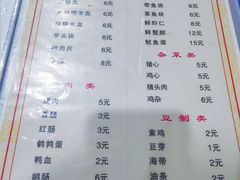 6元
6元
芋头块 6元
6元
6元
肉类
5元
香肠 3元
红肠 3元
鹌鹑蛋 3元
鸭血 2元
鹅肠 6元
带鱼块 6元
草鱼块 6元
鲜虾仁 8元
鲜蟹脚 12元
鱿鱼蛋 15元
杂菜类
猪心 5元
鸡心 5元
猪头肉 5元
鸡杂 6元
豆制类
素鸡 2元
豆芽 1元
海带 2元
油条 2元